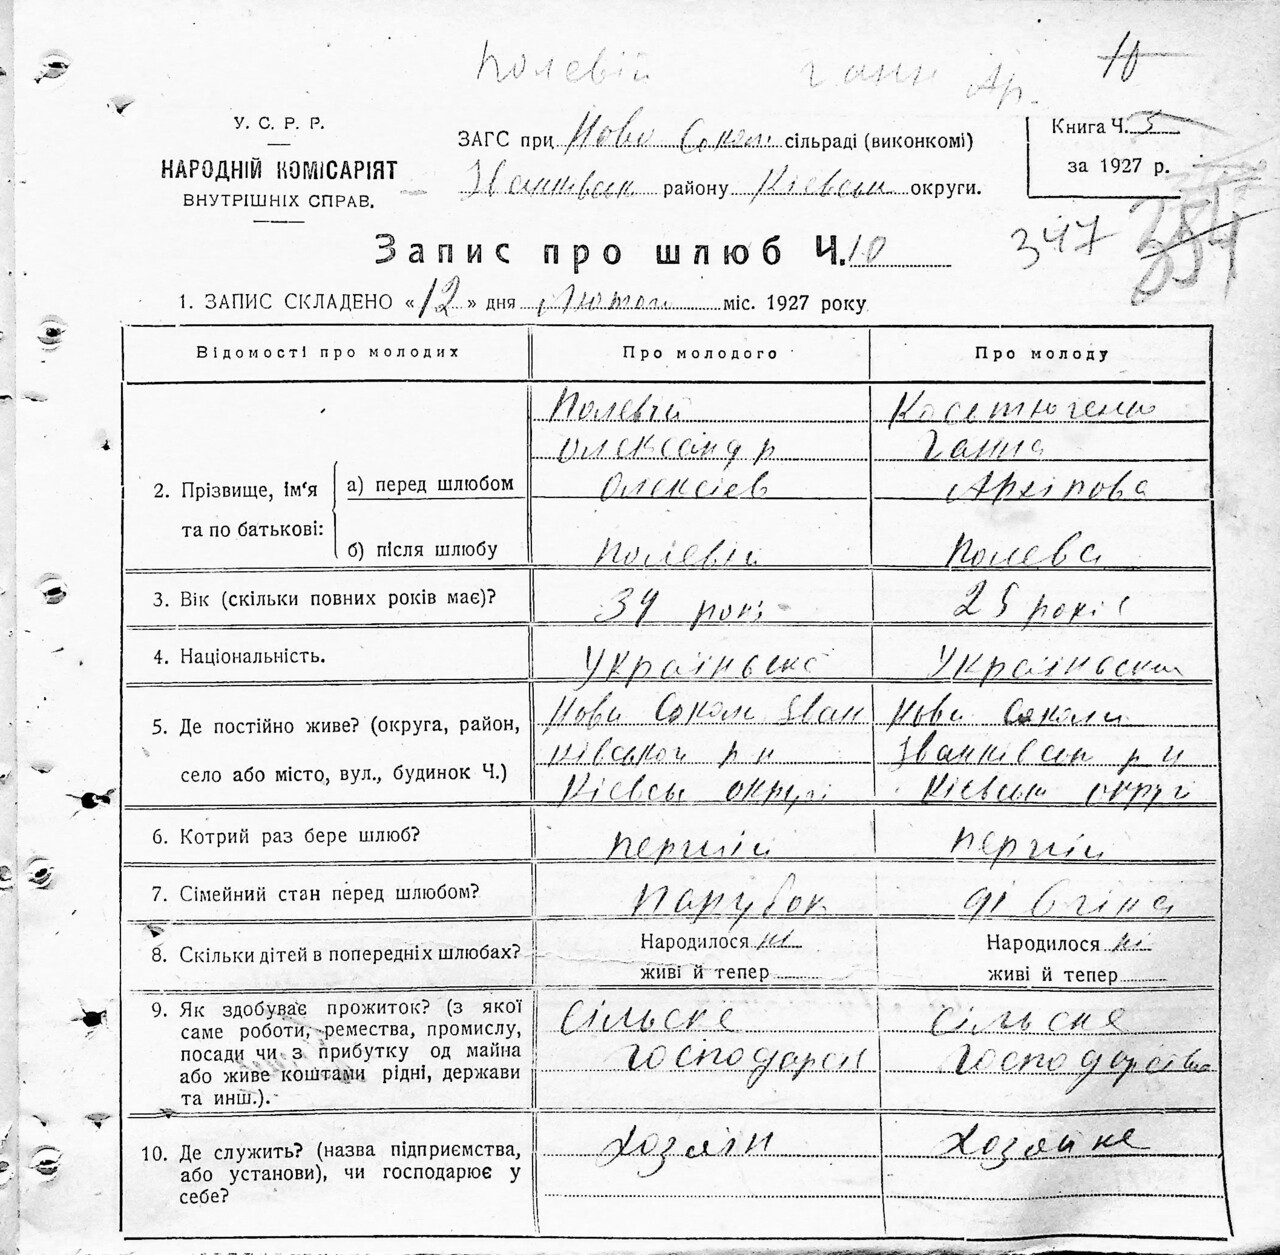 Полевій Ганн Ар.
10
У. С. Р. Р.
НАРОДНІЙ КОМІСАРІЯТ
ВНУТРІШНІХ СПРАВ.
ЗАГС при Ново Сокол сільраді (виконкомі)
району Київськ округи.
Книга Ч. 3
за 1927 р.
347
Запис про шлюб Ч. 10
1. ЗАПИС СКЛАДЕНО «12» дня Лютого міс. 1927 року
Відомості про молодих
Про молодого
Про молоду
2. Прізвище, ім'я
та по батькові:
а) перед шлюбом
Полевій
Олександр
Олексіев
Ганна
Архіпова
б) після шлюбу
Полевій
Полева
3. Вік (скільки повних років має)?
років
25 років
4. Національність.
Українська
Українська
5. Де постійно живе? (округа, район,
село або місто, вул., будинок Ч.)
Нови Соколи Іван
ківської р н
Київськ округи
Нови Соколи
Іванківськ р н
Київськ округі
6. Котрий раз бере шлюб?
перший
перший
7. Сімейний стан перед шлюбом?
Парубок
дівчіна
8. Скільки дітей в попередніх шлюбах?
Народилося ні
живі й тепер
Народилося ні
живі й тепер
9. Як здобуває прожиток? (з якої
саме роботи, ремества, промислу,
посади чи з прибутку од майна
або живе коштами рідні, держави
та инш.).
Сільске
господарсв
сільске
господарство
10. Де служить? (назва підприємства,
або установи), чи господарює у
себе?
Хозяїн
Хозяйка